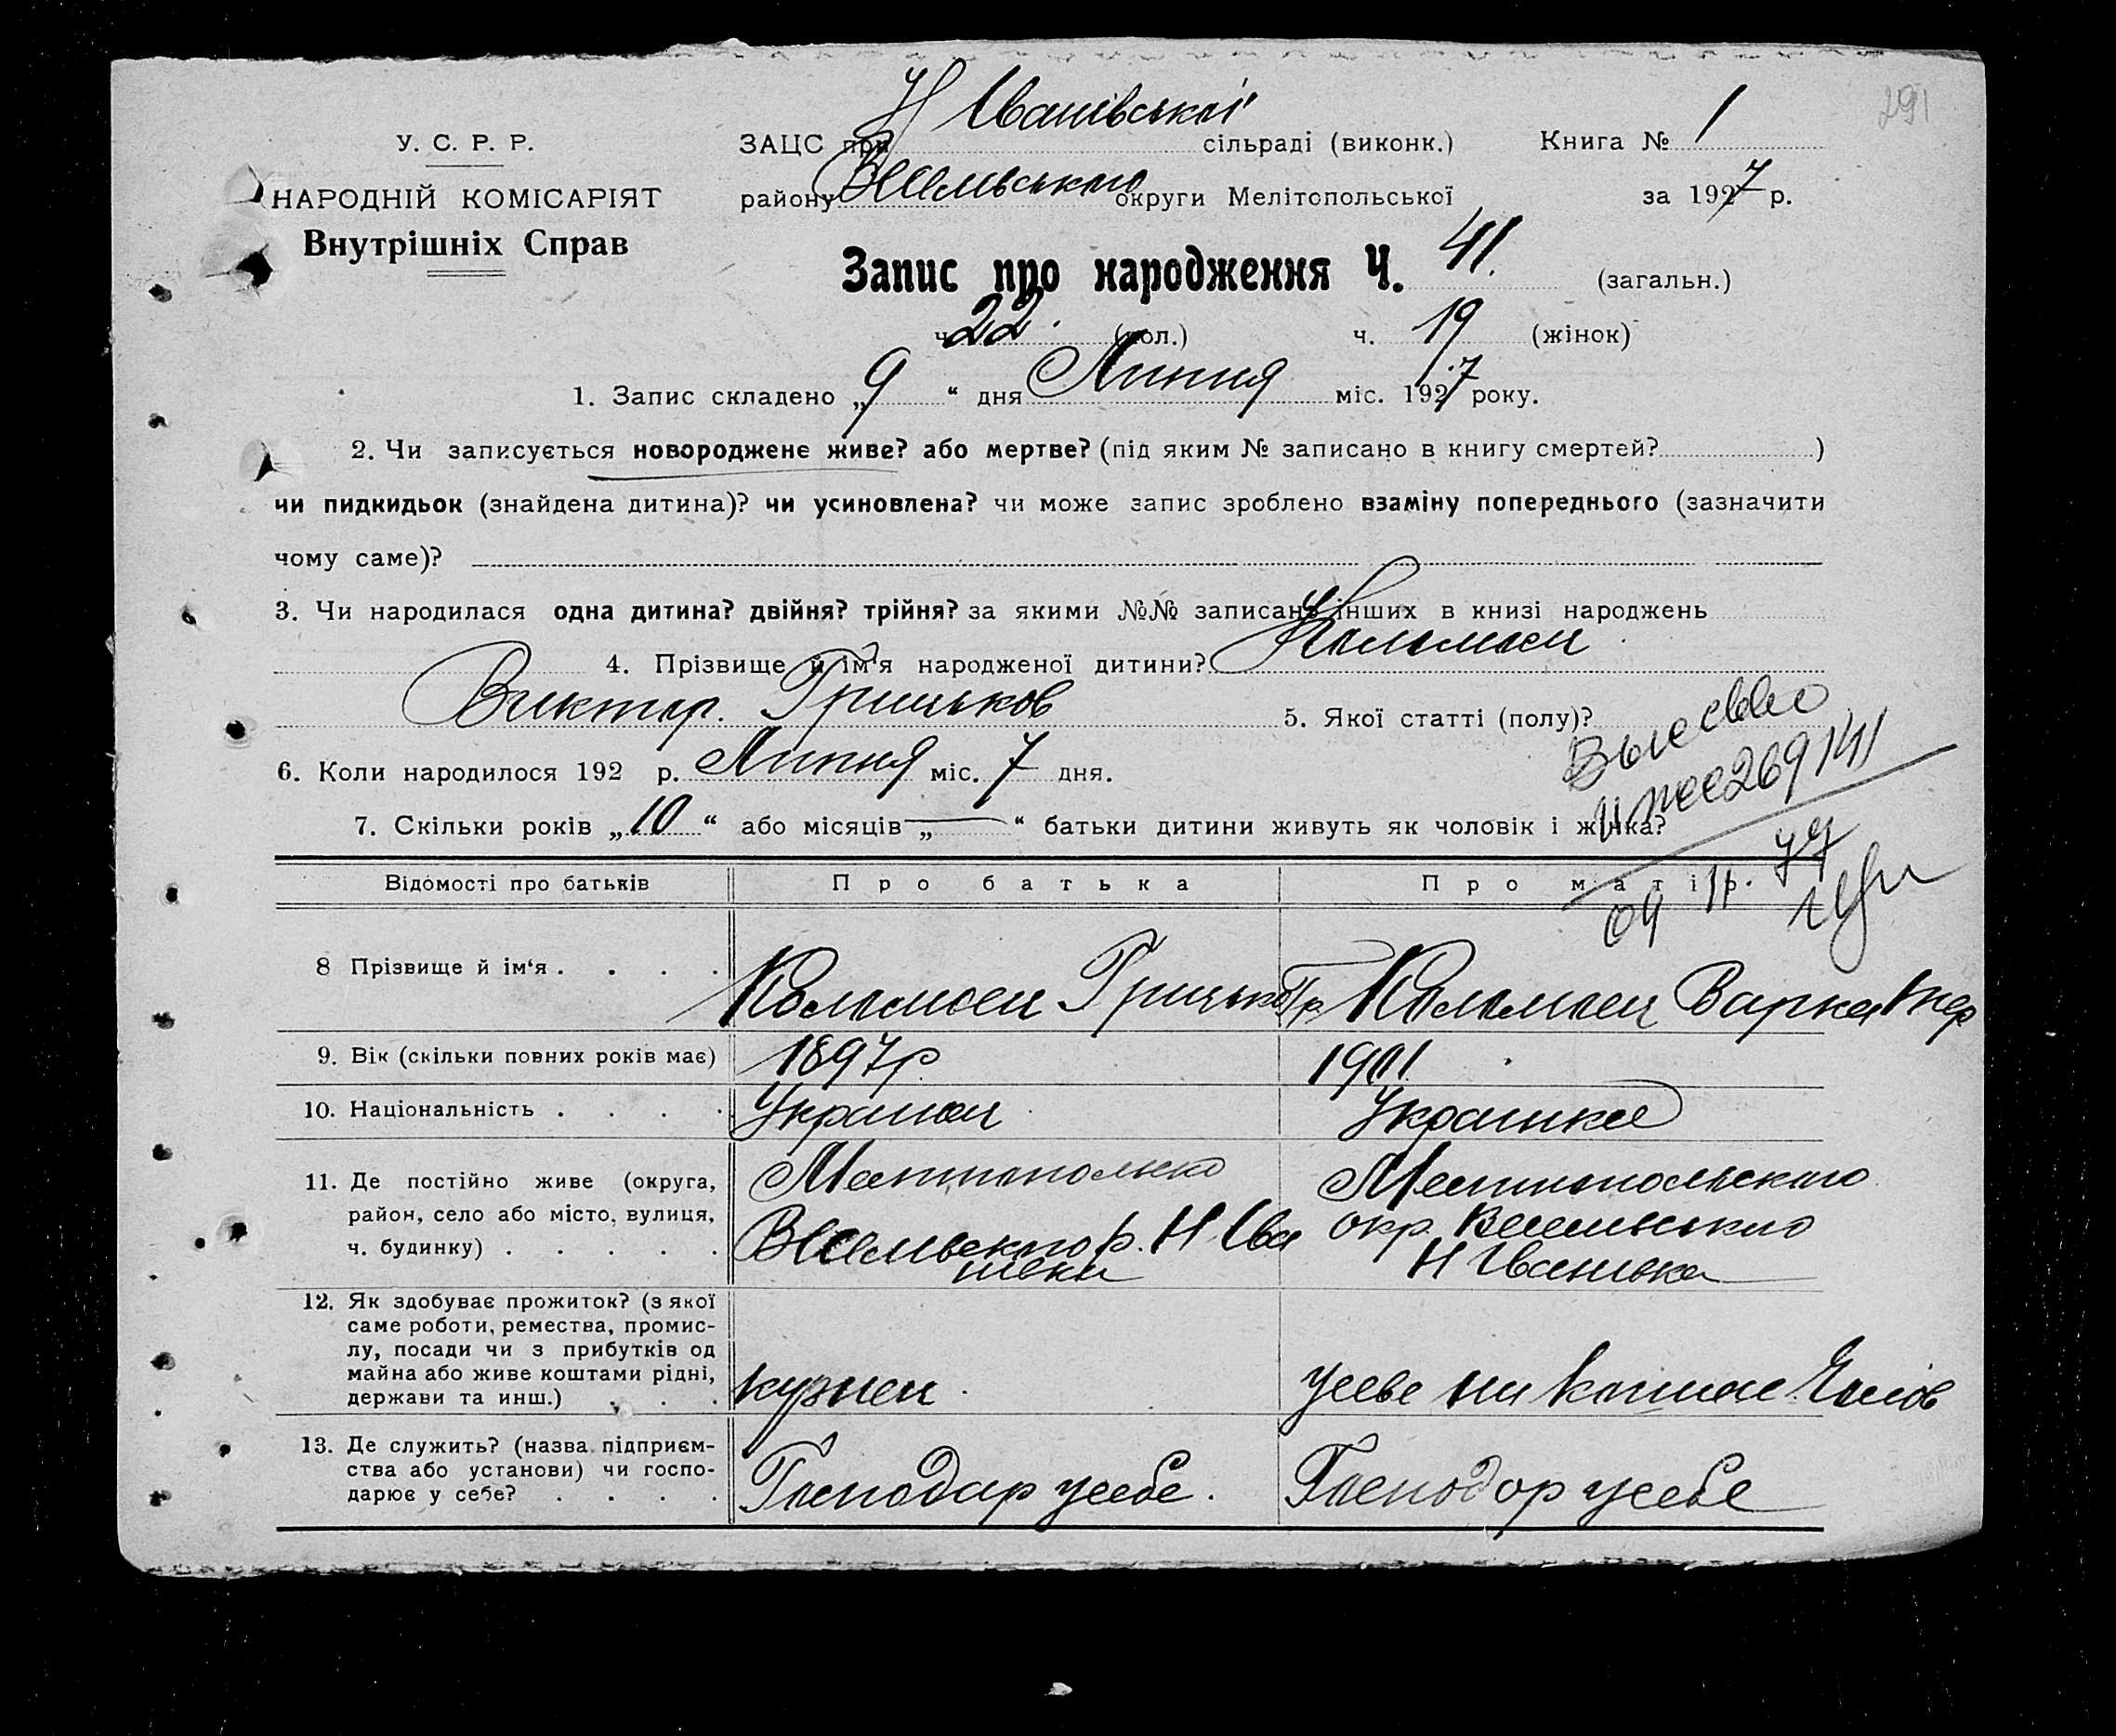 291
Н Іванівської
У. С. Р. Р. ЗАЦС при сільраді (виконк.) Книга № 1
НАРОДНІЙ КОМІСАРІЯТ району округи Мелітопольської за 1927 р.
Внутрішніх Справ
Запис про народження Ч. 41. (загальн.)
ч. 22. (чол.) ч. 19 (жінок)
1. Запис складено „ 9 “ дня Липня міс. 1927 року.
2. Чи записується новороджене живе? або мертве? (під яким № записано в книгу смертей? )
чи пидкидьок (знайдена дитина)? чи усиновлена? чи може запис зроблено взаміну попереднього (зазначити
чому саме)?
3. Чи народилася одна дитина? двійня? трійня? за якими №№ записано інших в книзі народжень
4. Прізвище й ім'я народженої дитини?
Виктор. Гришков 5. Якої статті (полу)?
6. Коли народилося 192 р. Липня міс. 7 дня.
7. Скільки років „ 10 “ або місяців „ — “ батьки дитини живуть як чоловік і жінка?
269141
09 11. 77
Відомості про батьків Про батька Про матір.
8 Прізвище й ім‘я . . . .
Варка
9. Вік (скільки повних років має) 1897р. 1901
10. Національність . . . . Украинец Украинка
11. Де постійно живе (округа, Мелитопольского
район, село або місто, вулиця, р. Н Ива окр.
ч. будинку) . . . . . нівки Н Иванивка
12. Як здобуває прожиток? (з якої
саме роботи, ремества, промис-
лу, посади чи з прибутків од
майна або живе коштами рідні,
держави та инш.) . . . на
13. Де служить? (назва підприєм-
ства або установи) чи госпо- Господар усебе. Господор усебе
дарює у себе? . . . .